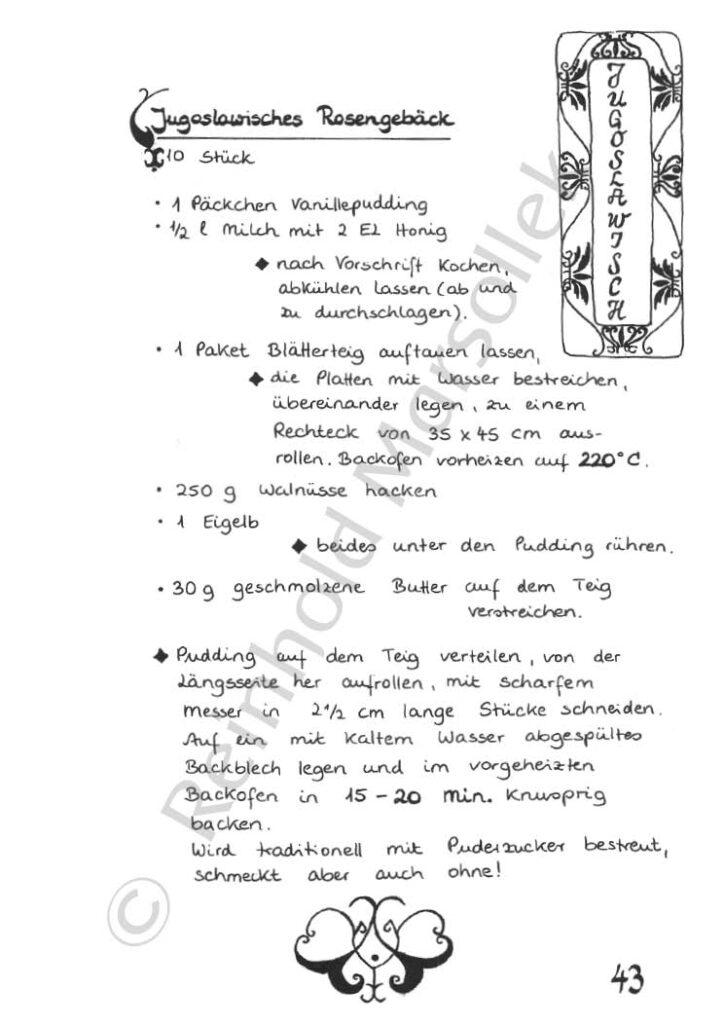 JUGOSLAWISCH
Jugoslawisches Rosengebäck
10 Stück
• 1 Päckchen Vanillepudding
• 1/2 l Milch mit 2 EL Honig
◆ nach Vorschrift kochen,
abkühlen lassen (ab und
zu durchschlagen).
• 1 Paket Blätterteig auftauen lassen,
◆ die Platten mit Wasser bestreichen,
übereinander legen, zu einem
Rechteck von 35 x 45 cm aus-
rollen. Backofen vorheizen auf 220°C.
• 250 g Walnüsse hacken
• 1 Eigelb
◆ beides unter den Pudding rühren.
• 30 g geschmolzene Butter auf dem Teig
verstreichen.
◆ Pudding auf dem Teig verteilen, von der
Längsseite her aufrollen, mit scharfem
messer in 2 1/2 cm lange Stücke schneiden.
Auf ein mit kaltem Wasser abgespültes
Backblech legen und im vorgeheizten
Backofen in 15 - 20 min. knusprig
backen.
Wird traditionell mit Puderzucker bestreut,
schmeckt aber auch ohne!
43
© Reinhold Marsollek